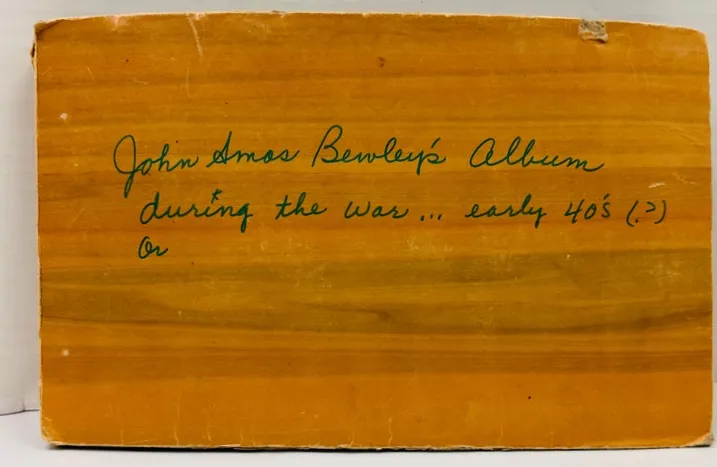 John Amos Bewley's Album
during the war... early 40's (?)
Or